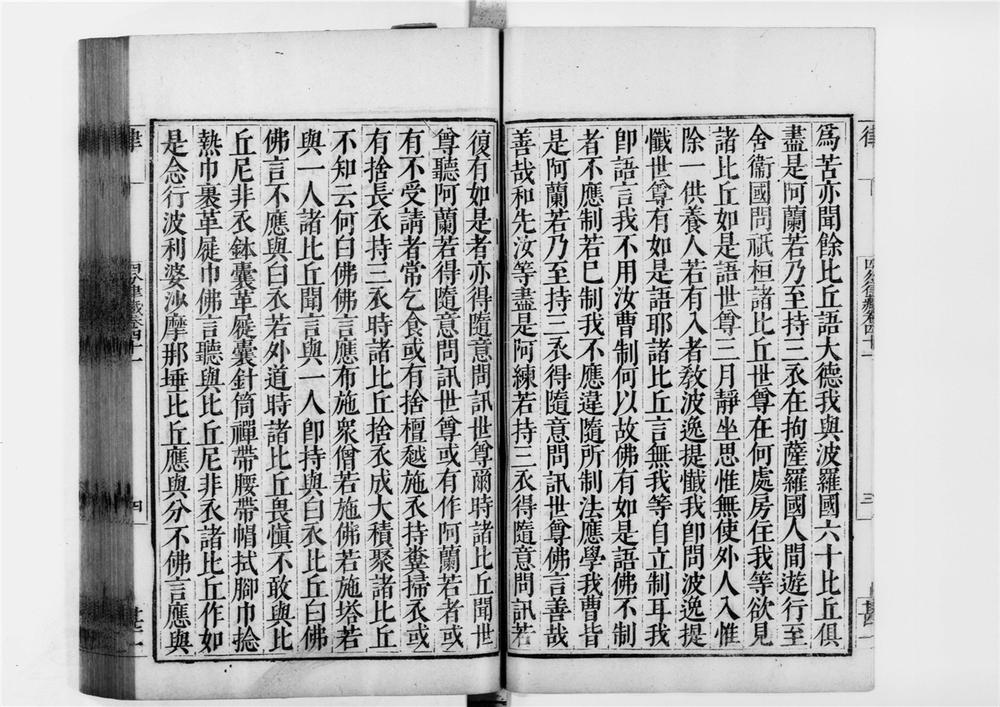 為苦亦聞餘比丘語大德我與波羅國六十比丘俱
盡是阿蘭若乃至持三衣在拘薩羅國人間遊行至
舍衛國問祇桓諸比丘世尊在何處房住我等欲見
諸比丘如是語世尊三月靜坐思惟無使外人入惟
除一供養人若有入者教波逸提懺我即問波逸提
懺世尊有如是語耶諸比丘言無我等自立制耳我
即語言我不用汝曹制何以故佛有如是語佛不制
者不應制若已制我不應違隨所制法應學我曹皆
是阿蘭若乃至持三衣得隨意問訊世尊佛言善哉
善哉和先汝等盡是阿練若持三衣得隨意問訊若
復有如是者亦得隨意問訊世尊爾時諸比丘聞世
尊聽阿蘭若得隨意問訊世尊或有作阿蘭若者或
有不受請者常乞食或有捨檀越施衣持糞掃衣或
有捨長衣持三衣時諸比丘捨衣成大積聚諸比丘
不知云何白佛佛言應布施眾僧若施佛若施塔若
與一人諸比丘聞言與一人即持與白衣比丘白佛
佛言不應與白衣若外道時諸比丘畏慎不敢與比
丘尼非衣鉢囊革屣囊針筒禪帶腰帶帽拭腳巾捻
熱巾裹革屣巾佛言聽與比丘尼非衣諸比丘作如
是念行波利婆沙摩那埵比丘應與分不佛言應與
律
四分律藏卷四十一
三
律
四分律藏卷四十一
四